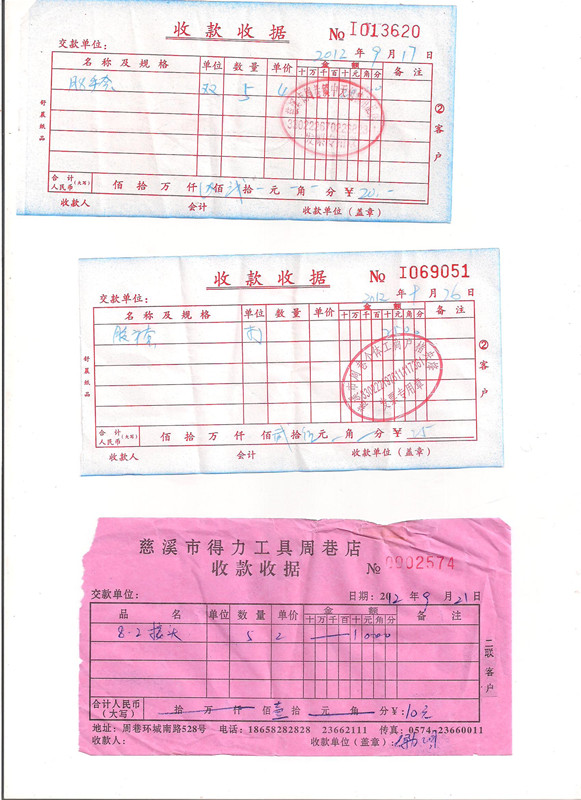 收款收据 No I013620
交款单位: 2012 年 9 月 17 日
名称及规格 单位 数量 单价 金额 备注
十万千百十元角分
双 5 4
合计人民币(大写) 佰 拾 万 仟 佰 拾 元 角 分 ¥ 20.-
收款人 会计 收款单位(盖章)
舒晨纸品
②客户
收款收据 No I069051
交款单位: 2012 年 十 月 26 日
名称及规格 单位 数量 单价 金额 备注
十万千百十元角分
2500
发票专用章
合计人民币(大写) 佰 拾 万 仟 佰 贰 拾 伍 元 角 分 ¥ 25
收款人 会计 收款单位(盖章)
舒晨纸品
②客户
慈溪市得力工具周巷店
收款收据 No 0902574
交款单位: 日期: 2012 年 9 月 21 日
品名 单位 数量 单价 金额 备注
十万千百十元角分
8-2 接头 5 2 1000
合计人民币(大写) 拾 万 仟 佰 壹 拾 元 角 分 ¥: 10元
地址: 周巷环城南路528号 电话: 18658282828 23662111 传真: 0574-23660011
收款人: 收款单位(盖章):
二联 客户